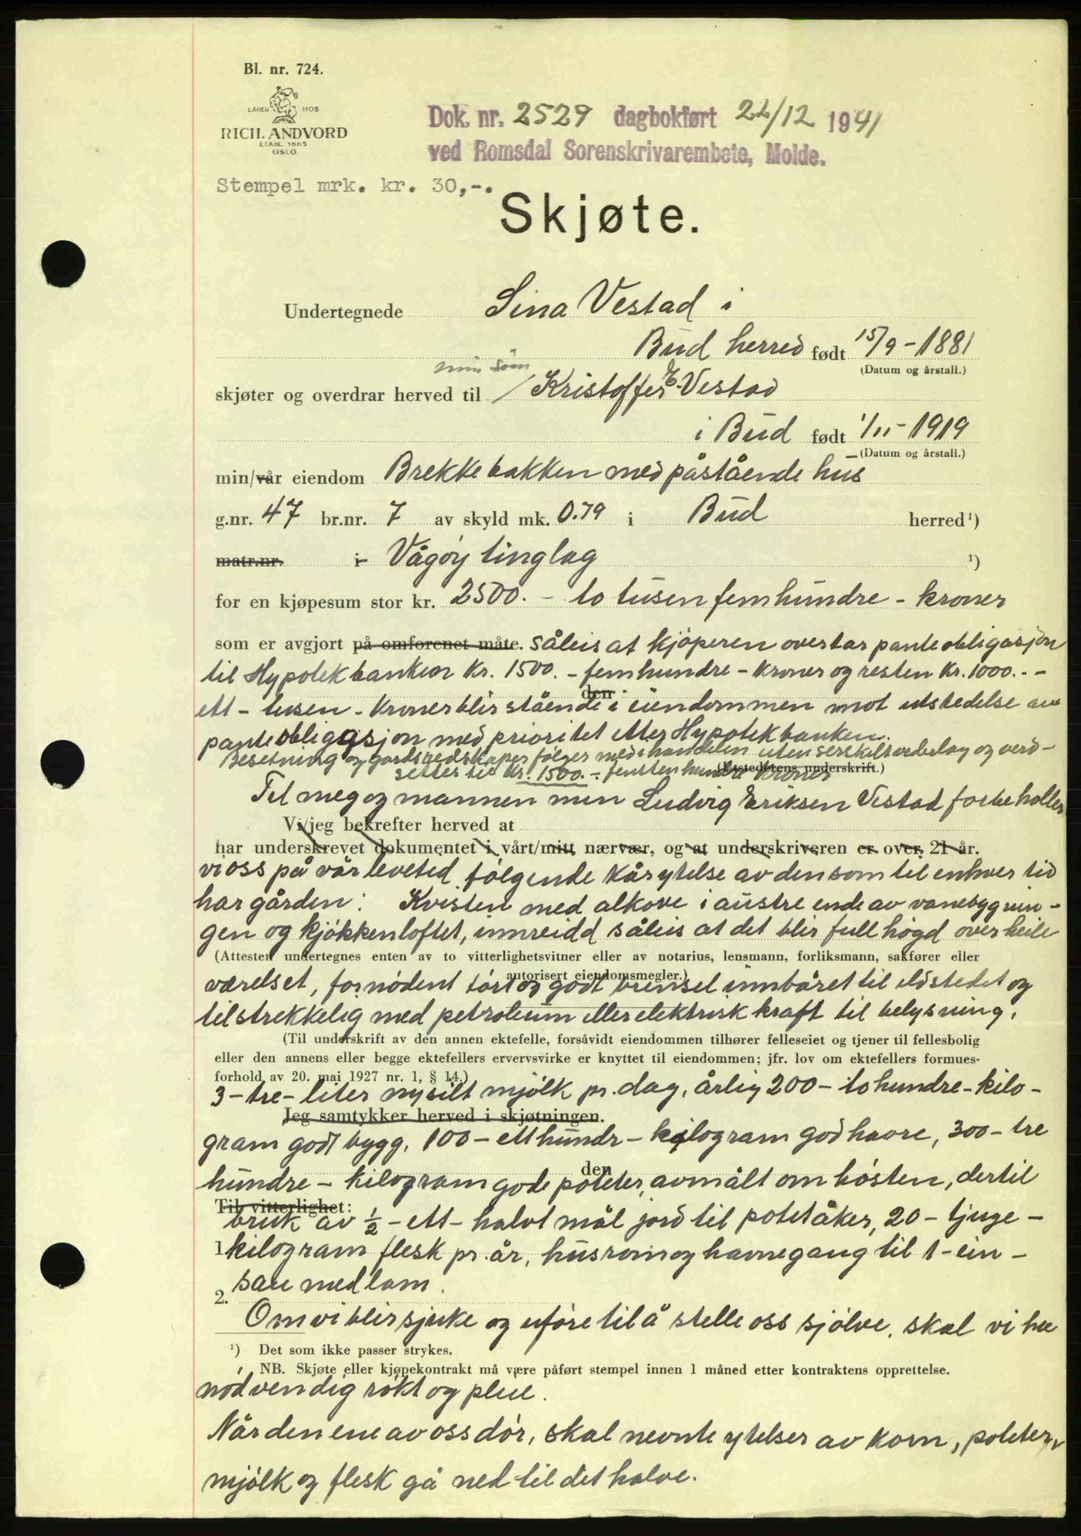 Bl. nr. 724.
LAGER 1105
RICH. ANDVORD
ETABL. 1865
OSLO
Dok. nr. 2529 dagbokført 22/12 1941
ved Romsdal Sorenskrivarembete, Molde.
Stempel mrk. kr. 30,-.
Skjøte.
Undertegnede Sina Vestad i
Bud herred født 15/9-1881
(Datum og årstall.)
min søn
skjøter og overdrar herved til Kristoffer Vestad
i Bud født 1/11-1919
(Datum og årstall.)
min/vår eiendom Brekkebakken med påstående hus
g.nr. 47 br.nr. 7 av skyld mk. 0.79 i Bud herred¹)
matr.nr. i Vågøy tinglag ¹)
for en kjøpesum stor kr. 2500.- to tusen femhundre - kroner
som er avgjort på omforenet måte. såleis at kjøperen overtar panteobligasjon
til Hypotekbanken kr. 1500.- femhundre - kroner og resten kr. 1000.--
den
ett - tusen - kroner blir stående i eiendommen mot utstedelse av
panteobligasjon med prioritet etter Hypotekbanken.
Besetning og gardsredskaper følger med handelen uten serskilt avtalag og verd-
(Utstederens underskrift.)
settes til kr. 1500.- femten hundre kroner
Til meg og mannen min Ludvig Eriksen Vestad forbeholler
Vi/jeg bekrefter herved at
har underskrevet dokumentet i vårt/mitt nærvær, og at underskriveren er over 21 år.
vi oss på vår levetid følgende kårytelse av den som til enhver tid
har gården: Kvisten med alkove i austre ende av vånebygnin-
gen og kjøkkenloftet, innreidd såleis at det blir full høgd over heile
(Attesten undertegnes enten av to vitterlighetsvitner eller av notarius, lensmann, forliksmann, sakfører eller
autorisert eiendomsmegler.)
værelset, fornødent tørt og godt brensel innbåret til ildstedet og
tilstrekkelig med petroleum eller elektrisk kraft til belysning,
(Til underskrift av den annen ektefelle, forsåvidt eiendommen tilhører felleseiet og tjener til fellesbolig
eller den annens eller begge ektefellers ervervsvirke er knyttet til eiendommen; jfr. lov om ektefellers formues-
forhold av 20. mai 1927 nr. 1, § 14.)
3 - tre - liter nysilt mjølk pr. dag, årlig 200 - tohundre - kilo-
Jeg samtykker herved i skjøtningen.
gram godt bygg, 100 - ett hundr - kilogram god havre, 300 - tre
den
hundre - kilogram gode poteter, avmålt om høsten, dertil
Til vitterlighet:
bruk av ½ - ett - halvt mål jord til potetåker, 20 - tjuge -
1. kilogram flesk pr. år, husrom og havnegang til 1 - ein -
sau med lam.
2.
Om vi blir sjuke og uføre til å stelle oss sjølve, skal vi ha
¹) Det som ikke passer strykes.
NB. Skjøte eller kjøpekontrakt må være påført stempel innen 1 måned etter kontraktens opprettelse.
nødvendig røkt og pleie.
Når den ene av oss dør, skal nevnte ytelser av korn, poteter,
mjølk og flesk gå ned til det halve.